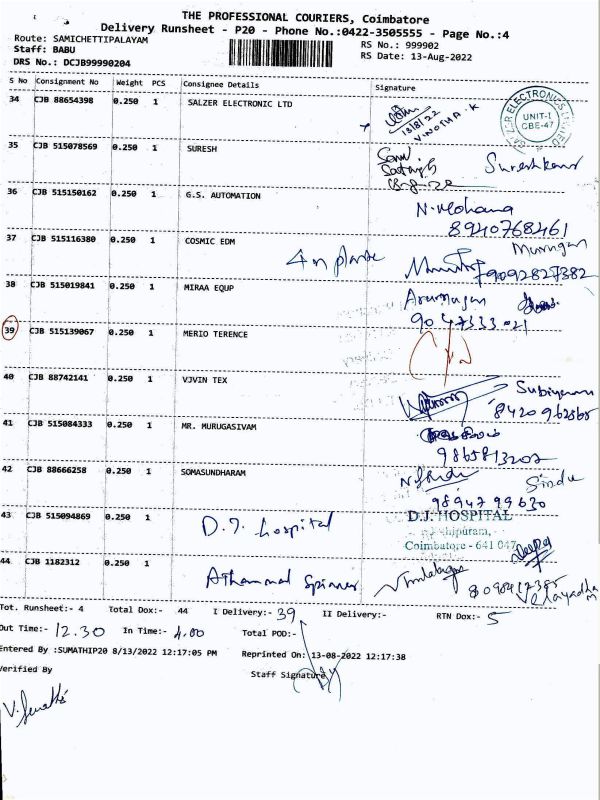 THE PROFESSIONAL COURIERS, Coimbatore
Delivery Runsheet - P20 - Phone No.:0422-3505555 - Page No.:4
Route: SAMICHETTIPALAYAM
RS No.: 999902
Staff: BABU
RS Date: 13-Aug-2022
DRS No.: DCJB99990204
S No Consignment No Weight PCS Consignee Details Signature
34 CJB 88654398 0.250 1 SALZER ELECTRONIC LTD
13/8/22
VINOTHA.K
SALZER ELECTRONICS LIMITED
UNIT-I
CBE-47
35 CJB 515078569 0.250 1 SURESH
Sureshkumar
36 CJB 515150162 0.250 1 G.S. AUTOMATION
N. Mohana
8940768461
37 CJB 515116380 0.250 1 COSMIC EDM
Murugan
9092827382
38 CJB 515019841 0.250 1 MIRAA EQUP
Arumugam
9047333021
39 CJB 515139067 0.250 1 MERIO TERENCE
40 CJB 88742141 0.250 1 VJVIN TEX
41 CJB 515084333 0.250 1 MR. MURUGASIVAM
9865813202
42 CJB 88666258 0.250 1 SOMASUNDHARAM
Sindu
9894799630
43 CJB 515094869 0.250 1 D.J. hospital
D.J. HOSPITAL
Coimbatore - 641 047
44 CJB 1182312 0.250 1 Athammal Spinner
Tot. Runsheet:- 4 Total Dox:- 44 I Delivery:- 39 II Delivery:- RTN Dox:- 5
Out Time:- 12.30 In Time:- 4.00 Total POD:-
Entered By :SUMATHIP20 8/13/2022 12:17:05 PM Reprinted On: 13-08-2022 12:17:38
Verified By
Staff Signature